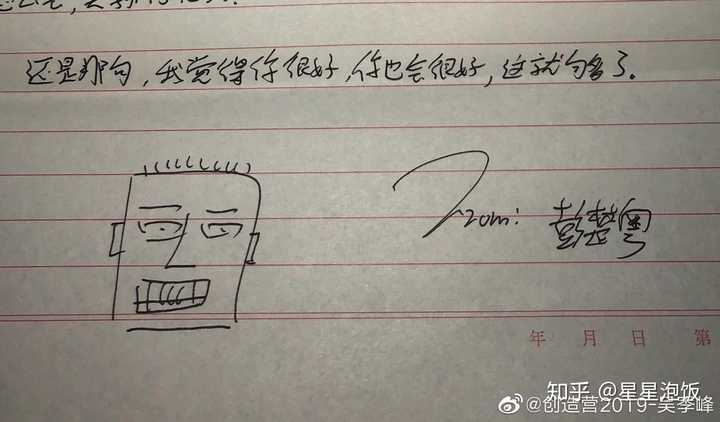 还是那句，我觉得你很好，你也会很好，这就够了。
From: 彭楚粤
年 月 日 第
知乎 @星星泡饭
@创造营2019-吴季峰